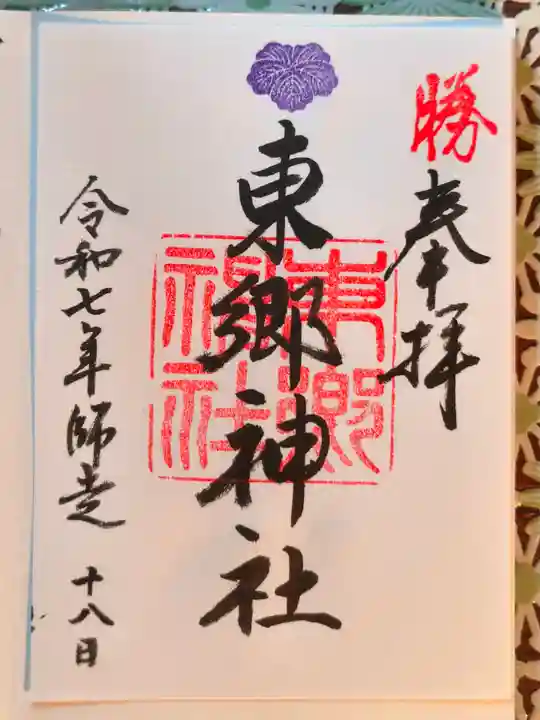 勝
奉拝
東郷神社
東郷神社
令和七年師走 十八日